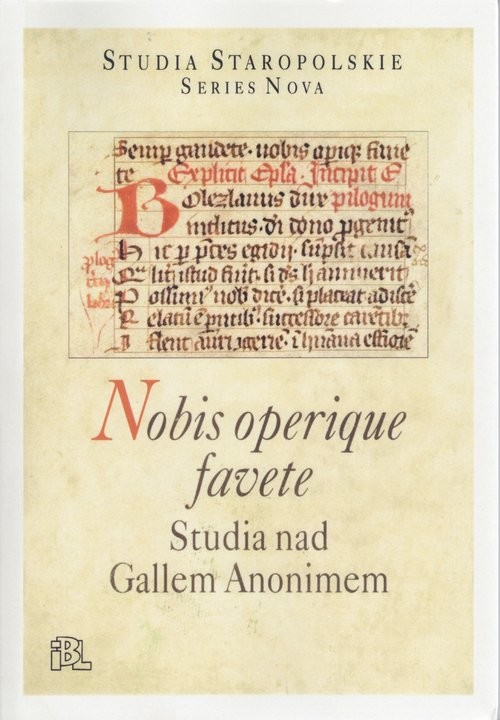 STUDIA STAROPOLSKIE
SERIES NOVA
Semp gaudete. nobis opiq faue
te Explicit Epla. Incipit E
Bolezlauus dux pilogum
inclitus. di dono pgenit
Hic p pces egidii. supsit causa
istud fuit. si ds h annuerit
Possum nob dice. si placeat adisce
Relatu e successore carentib
Nobis operique
favete
Studia nad
Gallem Anonimem
IBL